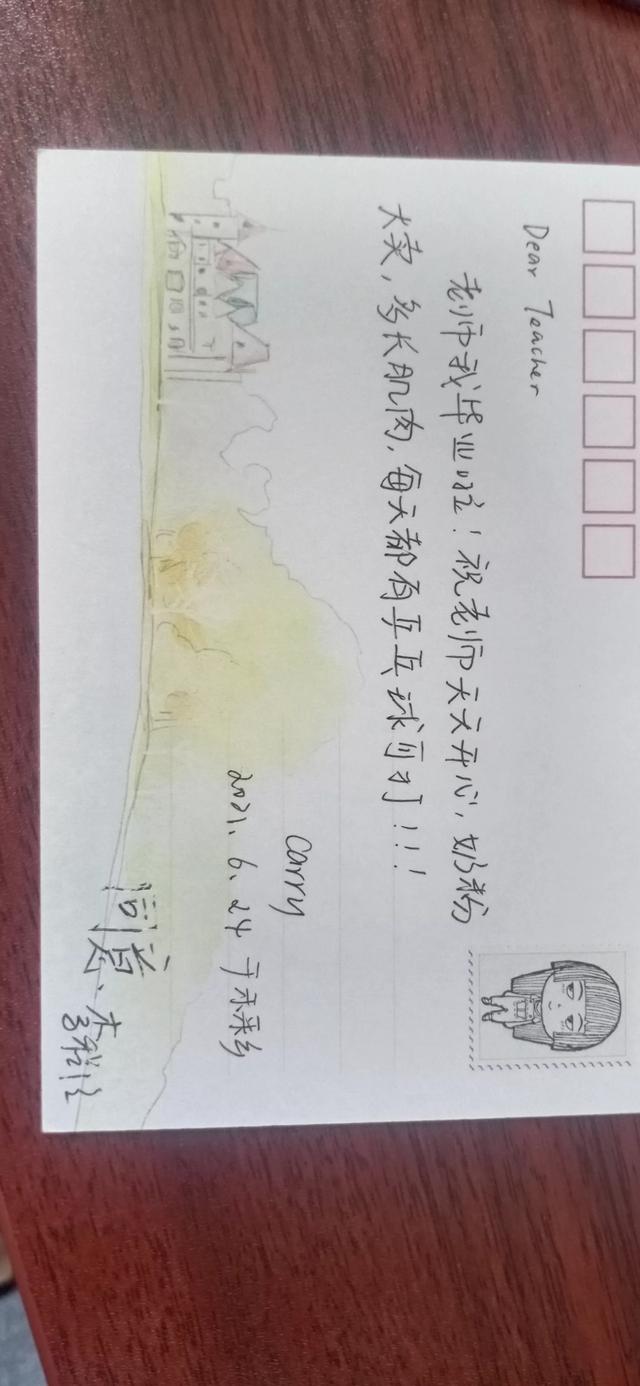 Dear Teacher
老师我毕业啦！祝老师天天开心，奶粉
大卖，多长肌肉，每天都有乒乓球可打！！！
Carry
2021.6.24 于未来乡